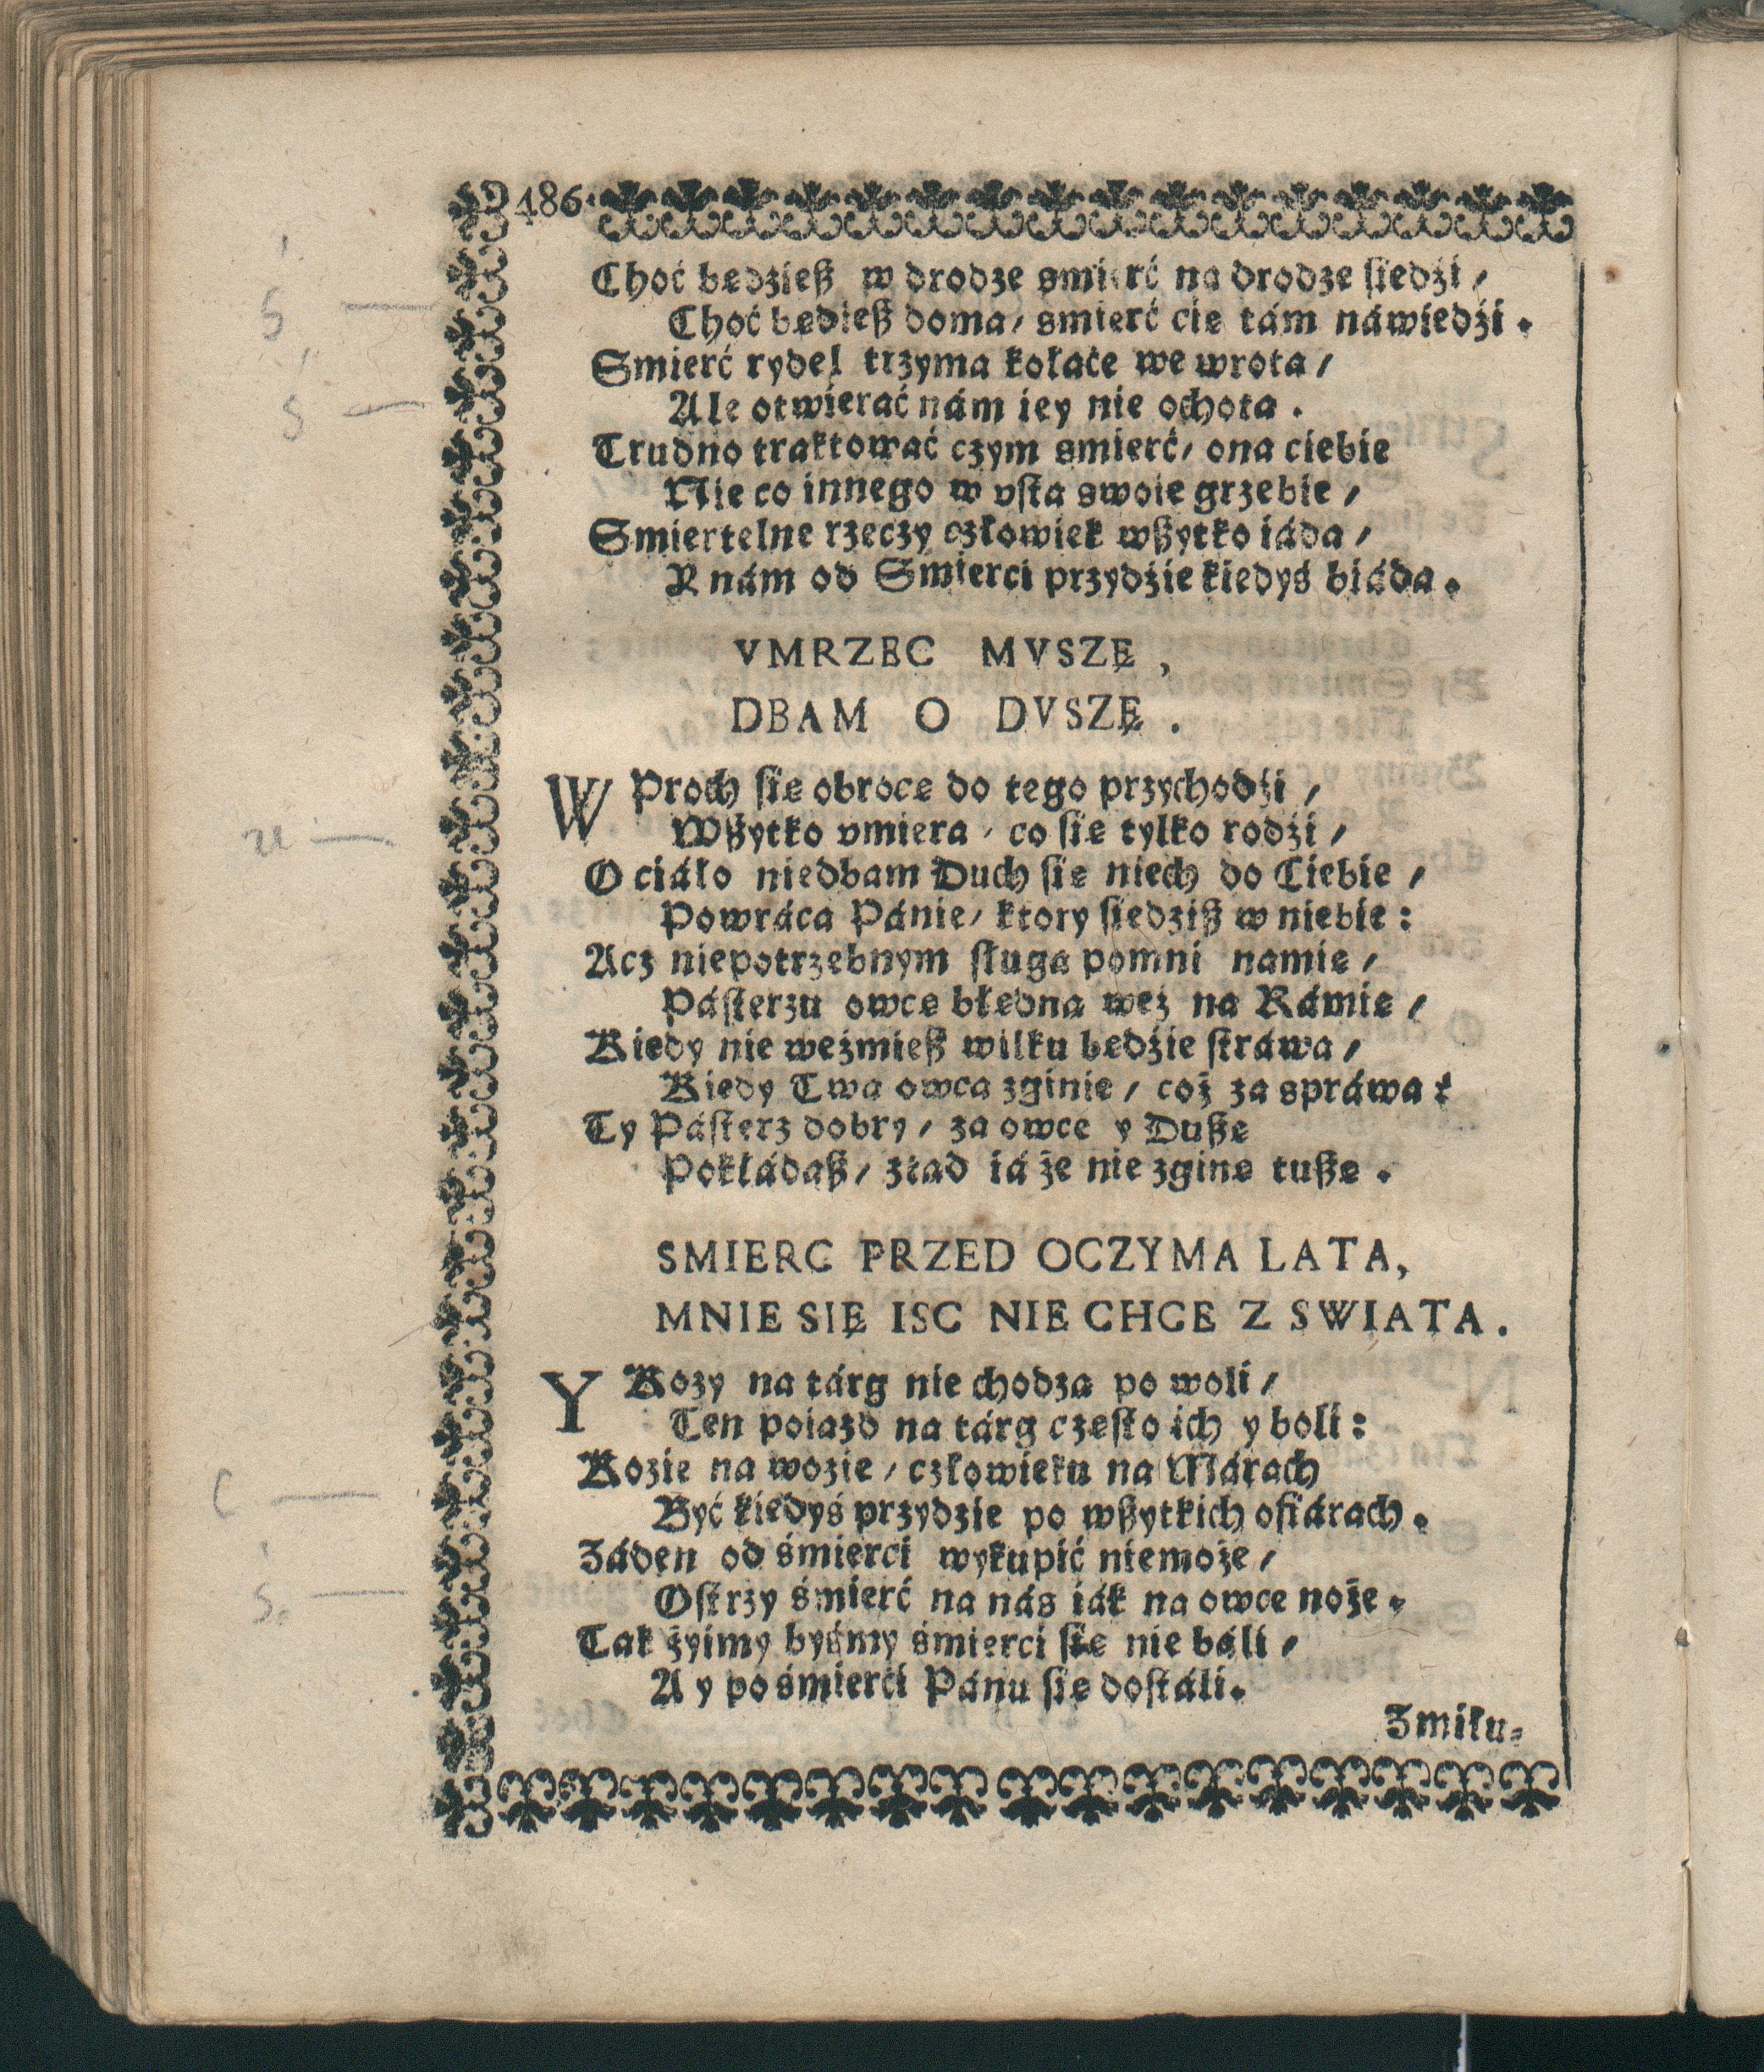 486.
Choć będzieß w drodze smierć na drodze siedźi /
Choć będieß doma / smierć cię tám náwiedźi .
Smierć rydel trzyma kołace we wrota /
Ale otwieráć nám iey nie ochota .
Trudno traktowáć czym smierć / ona ciebie
Nie co innego w vsta swoie grzebie /
Smiertelne rzeczy człowiek wßytko iáda /
Y nám od Smierci przydźie kiedyś biáda .
VMRZEC MVSZĘ ,
DBAM O DVSZĘ .
W Proch się obrocę do tego przychodźi /
Wßytko vmiera / co się tylko rodźi /
O ciáło niedbam Duch się niech do Ciebie /
Powráca Pánie / ktory siedziß w niebie :
Acz niepotrzebnym sługą pomni namię /
Pásterzu owcę błędną weź na Rámię /
Kiedy nie weźmieß wilku będźie stráwa /
Kiedy Twa owca zginie / coż za spráwa ?
Ty Pásterz dobry / za owce y Dußę
Pokłádaß / ztąd iá że nie zginę tußę .
SMIERC PRZED OCZYMA LATA,
MNIE SIĘ ISC NIE CHCE Z SWIATA .
Y Kozy na tárg nie chodzą po woli /
Ten poiazd na tárg często ich y boli :
Kozie na wozie / człowieku na Márach
Być kiedyś przydzie po wßytkich ofiárach .
Żáden od śmierci wykupić niemoże /
Ostrzy śmierć na nás iák na owce noże .
Tak żyimy byśmy śmierci się nie báli /
A y po śmierci Pánu się dostáli .
Zmiłu-
ś
ś
u
c
ś.